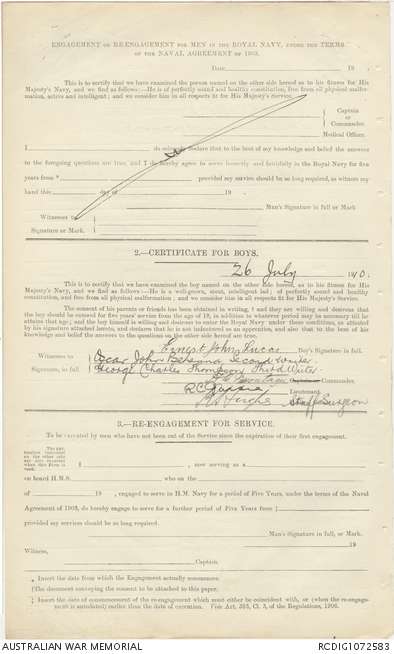 ENGAGEMENT OR RE-ENGAGEMENT FOR MEN IN THE ROYAL NAVY, UNDER THE TERMS
OF THE NAVAL AGREEMENT OF 1903.
Date 19
This is to certify that we have examined the person named on the other side hereof as to his fitness for His
Majesty's Navy, and we find as follows:—He is of perfectly sound and healthy constitution, free from all physical malformation, active and intelligent; and we consider him in all respects fit for His Majesty's Service.
Captain
or
Commander.
Medical Officer.
I do solemnly declare that to the best of my knowledge and belief the answers
to the foregoing questions are true, and I do hereby agree to serve honestly and faithfully in the Royal Navy for five
years from * provided my service should be so long required, as witness my
hand this day of 19
Man's Signature in full or Mark
Witnesses to
Signature or Mark.
2.—CERTIFICATE FOR BOYS.
26 July 190
This is to certify that we have examined the boy named on the other side hereof, as to his fitness for His
Majesty's Navy, and we find as follows:—He is a well-grown, stout, intelligent lad; of perfectly sound and healthy
constitution, and free from all physical malformation; and we consider him in all respects fit for His Majesty's Service.
The consent of his parents or friends has been attained in writing, † and they are willing and desirous that
the boy should be entered for five years' service from the age of 18, in addition to whatever period may be necessary till he
attains that age; and the boy himself is willing and desirous to enter the Royal Navy under these conditions, as attested by
his signature attached hereto, and declares that he is not indentured as an apprentice, and also that to the best of his
knowledge and belief the answers to the questions on the other side hereof are true.
Ernest John Boy's Signature in full.
Witnesses to Oscar John Second Writer
Signature, in full. George Charles Thompson Third Writer
Captain or Commander.
Lieutenant.
Staff Surgeon
3.—RE-ENGAGEMENT FOR SERVICE.
To be executed by men who have not been out of the Service since the expiration of their first engagement.
I , now serving as a
on board H.M.S. who on the
of 19 , engaged to serve in H.M. Navy for a period of Five Years, under the terms of the Naval
Agreement of 1903, do hereby engage to serve for a further period of Five Years from ‡
provided my services should be so long required.
Man's Signature in full, or Mark.
19
Witness,
Captain
* Insert the date from which the Engagement actually commences.
† The document conveying the consent to be attached to this paper.
‡ Insert date of commencement of the re-engagement which must either be coincident with, or (when the re-engagement is antedated) earlier than the date of execution. Vide Art. 385, Cl. 3, of the Regulations, 1906.
AUSTRALIAN WAR MEMORIAL
RCDIG1072583